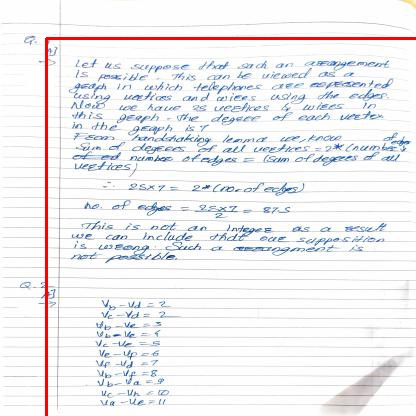 Q.
A]
→ Let us suppose that such an arrangement
is possible. This can be viewed as a
graph in which telephones are represented
using vertices and wires using the edges.
Now we have 25 vertices & wires in
this graph. The degree of each vertex
in the graph is 7
From handshaking lemma we know
Sum of degrees of all vertices = 2* (number of edges
number of edges = (sum of degrees of all
vertices)
∴ 25×7 = 2*(no. of edges)
no. of edges = 25×7/2 = 87.5
This is not an Integer as a result
we can include that our supposition
is wrong. Such a arrangment is
not possible.
Q. 2
A]
→ Vb - Vd = 2
Vc - Vd = 2
Vb - Ve = 3
Vb - Ve = 4
Vc - Ve = 5
Ve - Vf = 6
Vf - Vd = 7
Vb - Vf = 8
Vb - Va = 9
Vc - Vh = 10
Va - Ve = 11